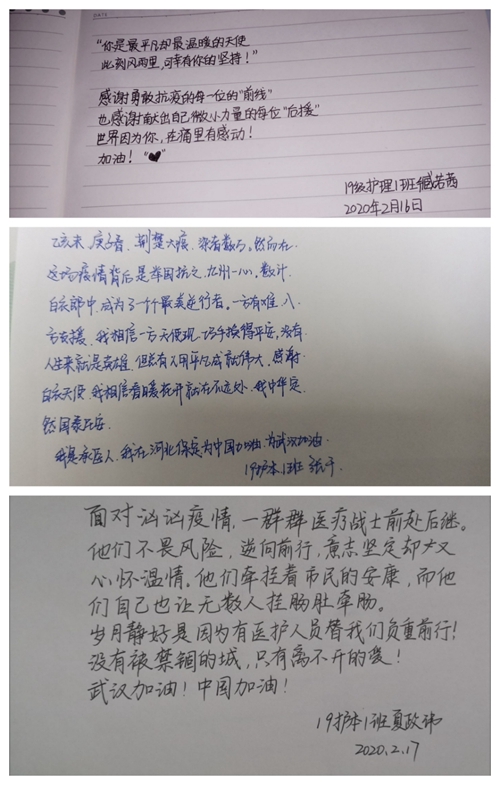 DATE
“你是最平凡却最温暖的天使
此刻风雨里，可幸有你的坚持！”
感谢勇敢抗疫的每一位的“前线”
也感谢献出自己微小力量的每位“后援”
世界因为你，在痛里有感动！
加油！“♥”
19级护理1班臧若茜
2020年2月16日
乙亥末，庚子春，荆楚大疫，染者数万。然而在
这场疫情背后是举国抗之，九州一心。数计
白衣郎中，成为了一个个最美逆行者。一方有难，八
方支援，我相信一方天使现，场将换得平安，没有
人生来就是英雄，但总有人用平凡成就伟大。感谢
白衣天使，我相信春暖花开就在不远处，我中华定
然国泰民安。
我是医人，我在河北保定为中国加油，为武汉加油。
19护本1班 张
面对汹汹疫情，一群群医疗战士前赴后继。
他们不畏风险，逆向前行，意志坚定却又
心怀温情。他们牵挂着市民的安康，而他
们自己也让无数人挂肠肚牵肠。
岁月静好是因为有医护人员替我们负重前行！
没有被禁锢的城，只有离不开的爱！
武汉加油！中国加油！
19护本1班夏政讳
2020.2.17